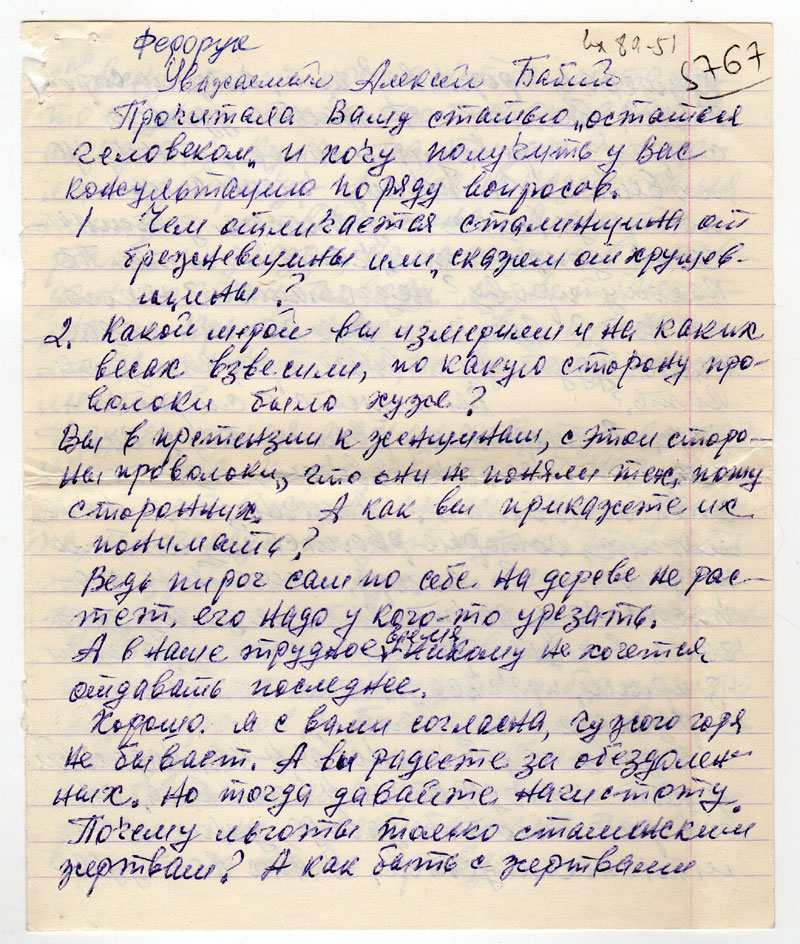 Федорук
вх 89-51
5767
Уважаемый Алексей Бабий
Прочитала Вашу статью „остаться
человеком„ и хочу получить у вас
консультацию по ряду вопросов.
1 Чем отличается сталинщина от
брежневщины или, скажем от хрущев-
щины?
2. Какой мерой вы измерили и на каких
весах взвесили, по какую сторону про-
волоки было хуже?
Вы в претензии к женщинам, с этой сторо-
ны проволоки, что они не поняли тех, поту
сторонних. А как вы прикажете их
понимать?
Ведь пирог сам по себе на дереве не рас-
тет, его надо у кого-то урезать.
А в наше трудное время никому не хочется
отдавать последнее.
Хорошо. Я с вами согласна, чужого горя
не бывает. А вы радеете за обездолен-
ных. Но тогда давайте начистоту.
Почему льготы только сталинским
жертвам? А как быть с жертвами